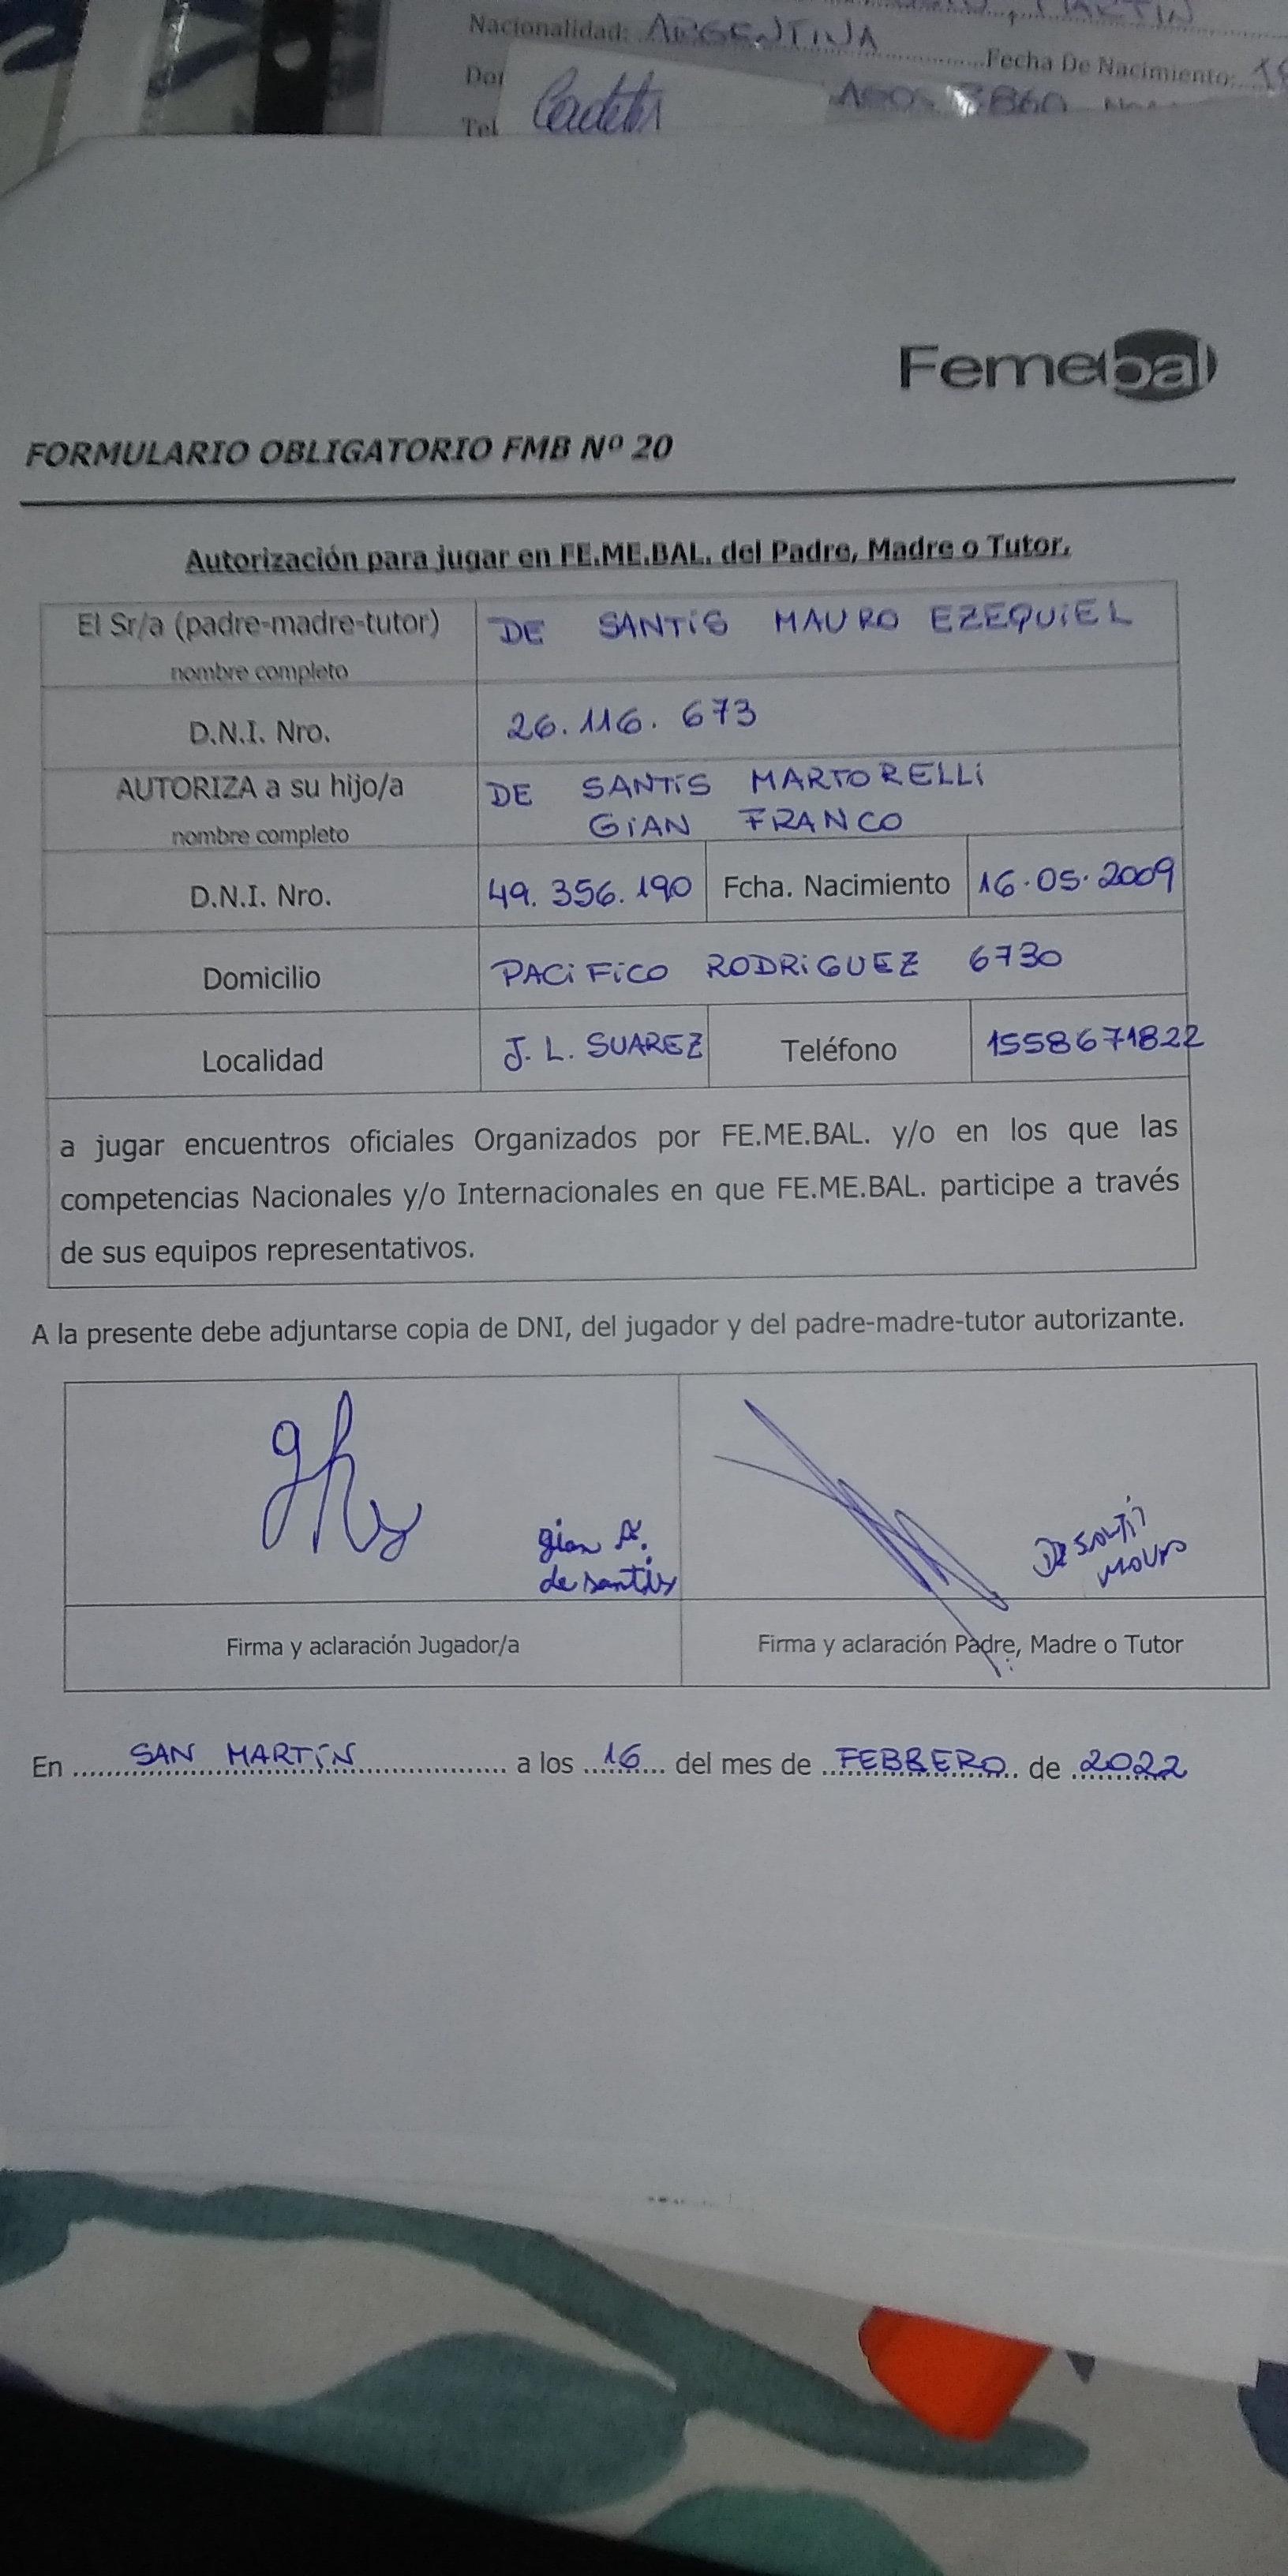 MARTIN
Nacionalidad: ARGENTINA
Fecha De Nacimiento:
Tel
Femebal
FORMULARIO OBLIGATORIO FMB Nº 20
Autorización para jugar en FE.ME.BAL. del Padre, Madre o Tutor.
El Sr/a (padre-madre-tutor) DE SANTiS MAURO EZEQUiEL
nombre completo
D.N.I. Nro. 26.116.673
AUTORIZA a su hijo/a DE SANTiS MARTORELLi
nombre completo GiAN FRANCO
D.N.I. Nro. 49.356.190 Fcha. Nacimiento 16.05.2009
Domicilio PACiFiCO RODRiGUEZ 6730
Localidad J.L. SUAREZ Teléfono 1558671822
a jugar encuentros oficiales Organizados por FE.ME.BAL. y/o en los que las
competencias Nacionales y/o Internacionales en que FE.ME.BAL. participe a través
de sus equipos representativos.
A la presente debe adjuntarse copia de DNI, del jugador y del padre-madre-tutor autorizante.
gian f.
de santis
De Santis
Mauro
Firma y aclaración Jugador/a Firma y aclaración Padre, Madre o Tutor
En SAN MARTÍN a los 16 del mes de FEBRERO de 2022